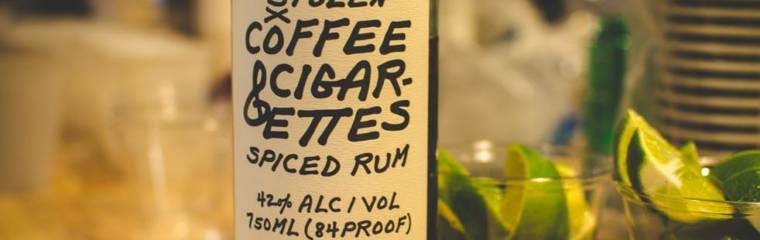 STOLEN
X
COFFEE
& CIGAR-
ETTES
SPICED RUM
42% ALC / VOL
750ML (84 PROOF)